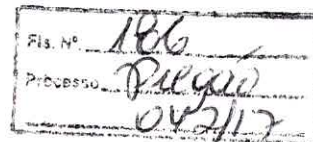 Fls. Nº 186
Processo Pregão
042/17